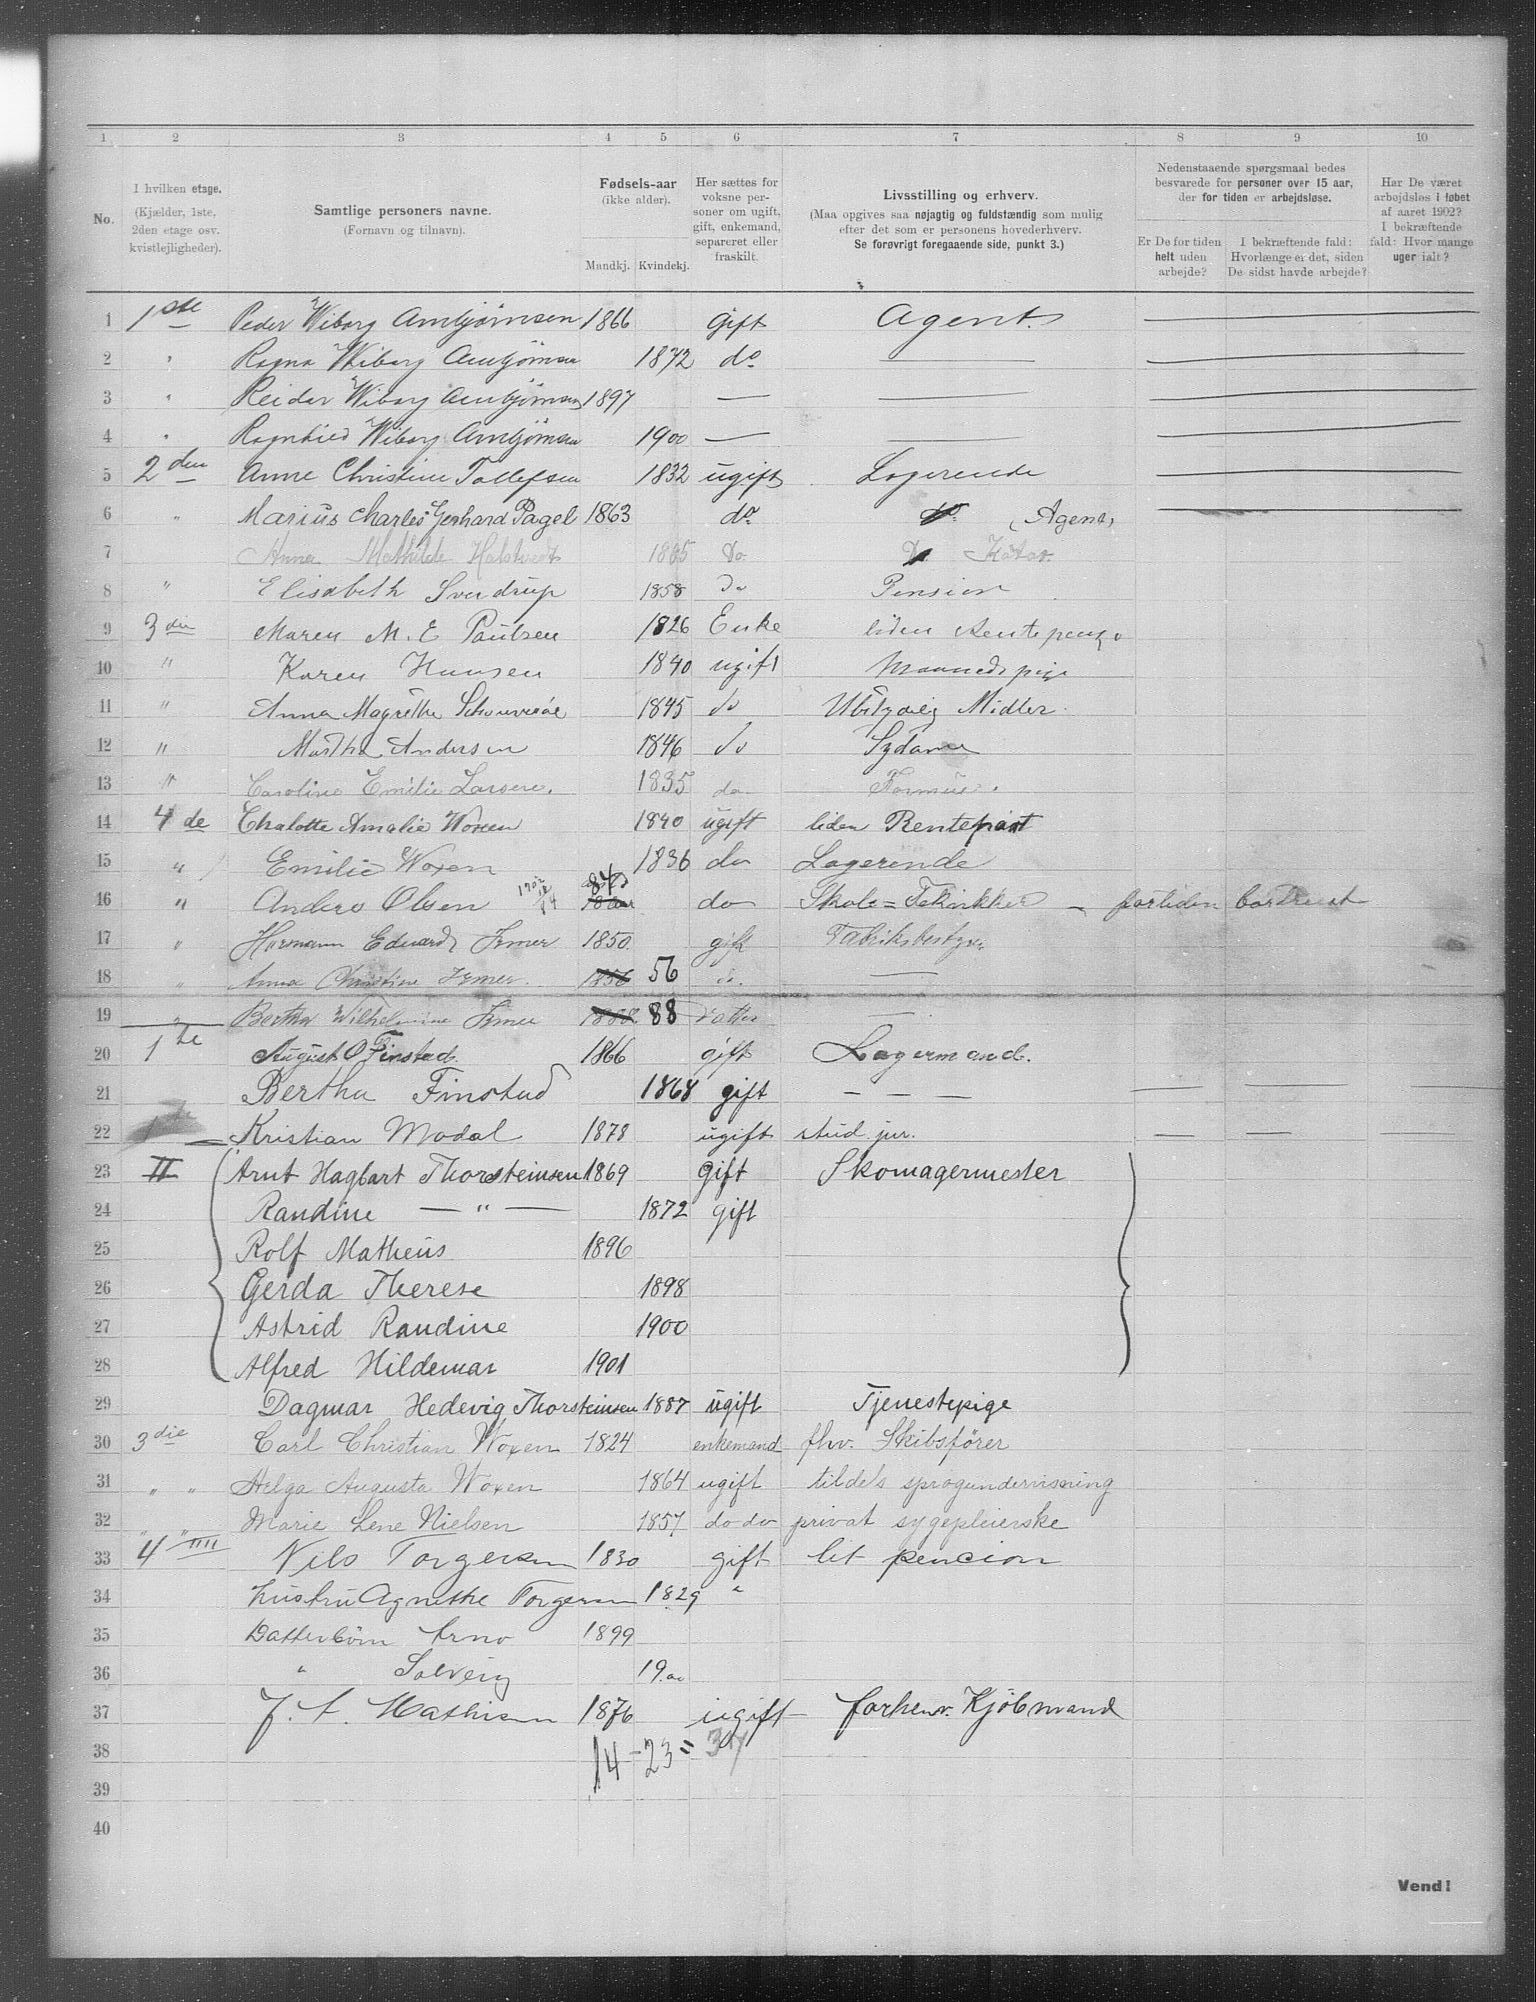 1 2 3 4 5 6 7 8 9 10
No.
I hvilken etage.
(Kjælder, 1ste, 2den etage osv. kvistlejligheder).
Samtlige personers navne.
(Fornavn og tilnavn).
Fødsels-aar
(ikke alder).
Mandkj. Kvindekj.
Her sættes for voksne personer om ugift, gift, enkemand, separeret eller fraskilt.
Livsstilling og erhverv.
(Maa opgives saa nøjagtig og fuldstændig som mulig efter det som er personens hovederhverv.
Se forøvrigt foregaaende side, punkt 3.)
Nedenstaaende spørgsmaal bedes besvarede for personer over 15 aar, der for tiden er arbejdsløse.
Er De for tiden helt uden arbejde?
I bekræftende fald: Hvorlænge er det, siden De sidst havde arbejde?
Har De været arbejdsløs i løbet af aaret 1902? I bekræftende fald: Hvor mange uger ialt?
1 1ste Peder Wiborg Ambjørnsen 1866 Gift Agent.
2 " Ragna Wiborg Ambjørnsen 1872 do —
3 " Reidar Wiborg Ambjørnsen 1897 — —
4 " Ragnhild Wiborg Ambjørnsen 1900 — —
5 2den Anne Christine Tollefsen 1832 ugift Logerende
6 " Marius Charles Gerhard Pagel 1863 do do (Agent)
7 Anna Mathilde Halstvedt Do
8 " Elisabeth Sverdrup 1858 Do Pension
9 3die Maren M. E Paulsen 1826 Enke liden Rentepenge
10 " Karen Hansen 1840 ugift Maanedspige
11 " Anna Magrethe 1845 do Midler
12 " Martha Andersen 1846 do Sydame
13 " Caroline Emilie Larsen. 1835 do Formue.
14 4de Chalotte Amalie Woxen 1840 ugift liden
15 " Emilie Woxen 1836 do Logerende
16 " Anders Olsen 84 do Skole = Tekniker — fortiden bortreist
17 " Hermann Edvard Irmer 1850 gift Fabriksbestyr.
18 " Anna Christine Irmer. 1856 56 do. —
19 " Bertha Wilhelmine Irmer 1888 88 Datter —
20 1ste August O Finstad. 1866 gift Lagermand.
21 Bertha Finstad 1868 gift — — —
22 1ste Kristian Modal 1878 ugift stud. jur. — — —
23 II Arnt Hagbart Thorsteinsen 1869 Gift Skomagermester
24 Randine — " — 1872 gift
25 Rolf Matheus 1896
26 Gerda Therese 1898
27 Astrid Randine 1900
28 Alfred Hildemar 1901
29 Dagmar Hedevig Thorsteinsen 1887 ugift Tjenestepige
30 3die Carl Christian Woxen 1824 enkemand fhv. Skibsfører
31 " " Helga Augusta Woxen 1864 ugift tildels sprogundervisning
32 " " Marie Lene Nielsen 1857 do do privat sygepleierske
33 4 """ Nils Torgersen 1830 gift lit pencion
34 hustru Agnethe Torgersen 1829 "
35 Datterbörn Arno 1899
36 " Solveig 1900
37 Mathisen 1876 ugift forhenv. Kjöbmand
38 14 - 23 = 37
39
40
Vend!